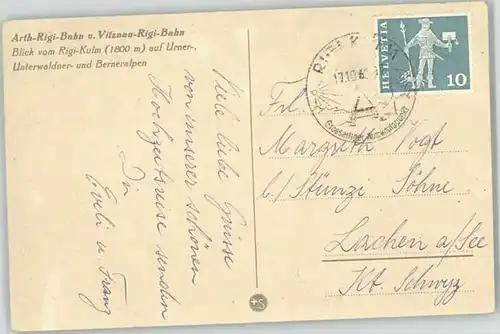 Arth-Rigi-Bahn u. Vitznau-Rigi-Bahn
Blick vom Rigi-Kulm (1800 m) auf Urner-,
Unterwaldner- und Berneralpen
Viele liebe Grüsse
von unserer schönen
Hochzeitsreise senden
Dir
Eveli u. Franz
HELVETIA
10
17.10.6
Frl.
Margreth Vogt
b/ Stünzi Söhne
Lachen a/See
Kt. Schwyz
+S